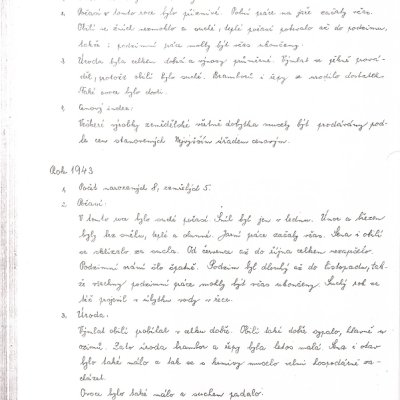 2. Počasí v tomto roce bylo příznivé. Polní práce na jaře začaly včas.
Obilí ve žních nezmoklo a suché, teplé počasí potrvalo až do podzimu,
takže i podzimní práce mohly být včas skončeny.
3. Úroda byla celkem dobrá a výnosy průměrné. Výmlat se pěkně prová-
děl, protože obilí bylo suché. Bramborů i řepy se urodilo dostatek.
Také ovoce bylo dosti.
4. Cenový index:
Veškeré výrobky zemědělské včetně dobytka musely být prodávány pod-
le cen stanovených Nejvyšším úřadem cenovým.
Rok 1943
1. Počet narozených 8, zemřelých 5.
2. Počasí:
V tomto roce bylo suché počasí. Sníh byl jen v lednu. Únor a březen
byly bez sněhu, teplé a slunné. Jarní práce začaly včas. Sena i obilí
se sklízelo za sucha. Od července až do října celkem nezapršelo.
Podzimní orání šlo špatně. Podzim byl dlouhý až do listopadu, tak-
že všechny podzimní práce mohly být včas skončeny. Suchý rok se
též projevil v úbytku vody v řece.
3. Úroda:
Výmlat obilí probíhal v celku dobře. Obilí také dobře sypalo, hlavně
ozimé. Zato úroda brambor a řepy byla letos malá. Sena i otav
bylo také málo a tak se s krmivy muselo velmi hospodárně za-
cházet.
Ovoce bylo také málo a suchem padalo.